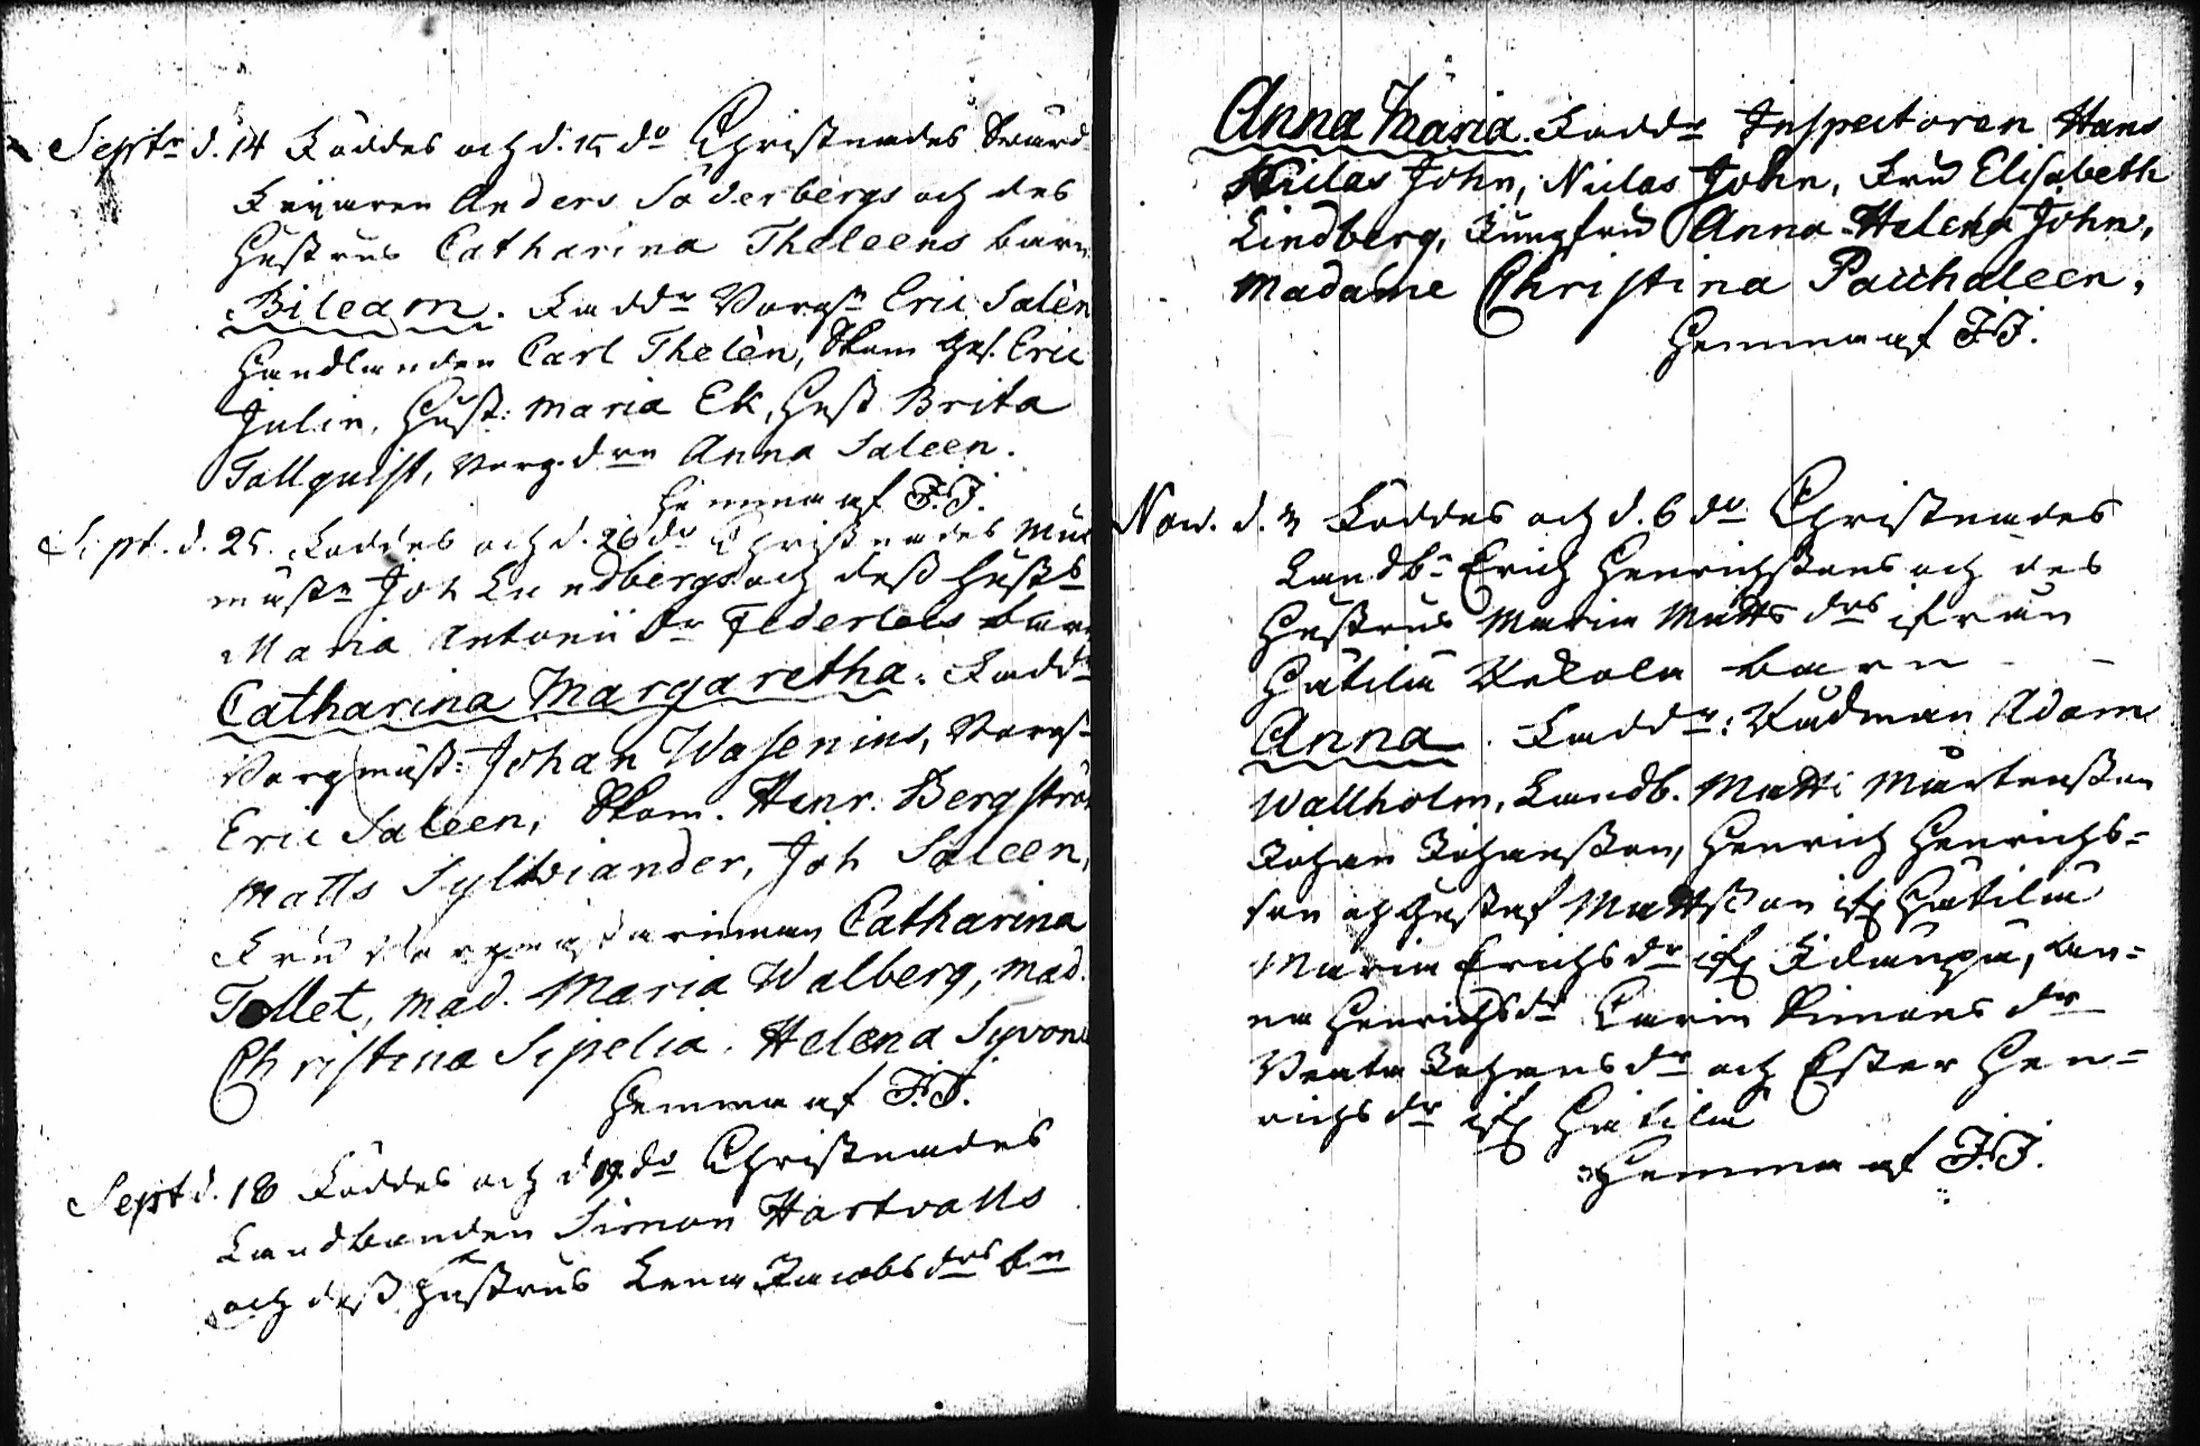 Septr d. 14 Föddes och d. 15 do Christnades Swärd
Fejaren Anders Söderbergs och des
Hustrus Catharina Theleens barn
Bileam. Faddr Borgr Eric Salèn
Handlanden Carl Thelèn, Skom Ges. Eric
Julin, Hust: Maria Ek, Hust Brita
Tallquist, Borg. drn Anna Saleen.
Hemma af F.J.
Sept. d. 25. Föddes och d. 26 do Christnades Mur
mästr Joh Lundbergs och dess Hustrs
Maria Antonii Dr Federleis barn
Catharina Margaretha. Faddr
Borgmäst: Johan Wasenius, Borgr
Eric Saleen, Skom. Henr. Bergströ
Matts Sylwiander, Joh Saleen,
Fru Borgmästarinnan Catharina
Tollet, Mad. Maria Walberg, Mad.
Christina Sipelia. Helena Syvon
Hemma af F.J.
Sept d. 18 Föddes och d 19. do Christnades
Landbonden Simon Hartvalls
och dess Hustrus Lena Jacobs drs bn
Anna Maria. Faddr Inspectoren Hans
Niclas John, Niclas John, Fru Elisabeth
Lindberg, Jungfru Anna Helena John,
Madame Christina Pacchaleen,
Hemma af F.J.
Now. d. 3 Föddes och d. 6 do Christnades
Landbr Erich Henrichssons och des
Hustrus Maria Matts drs ifrån
Hätilä barn
Anna. Faddr: Rådman Adam
Wallholm, Landb. Matti Mårtensson
Johan Johansson, Henrich Henrichs=
son och Gustaf Mattsson ifr Hätilä
Maria Erichs dr ifr, An=
na Henrichs dr Carin Simons dr
Beata Johans dr och Ester Hen=
richs dr ifr Hätilä
Hemma af F.J.